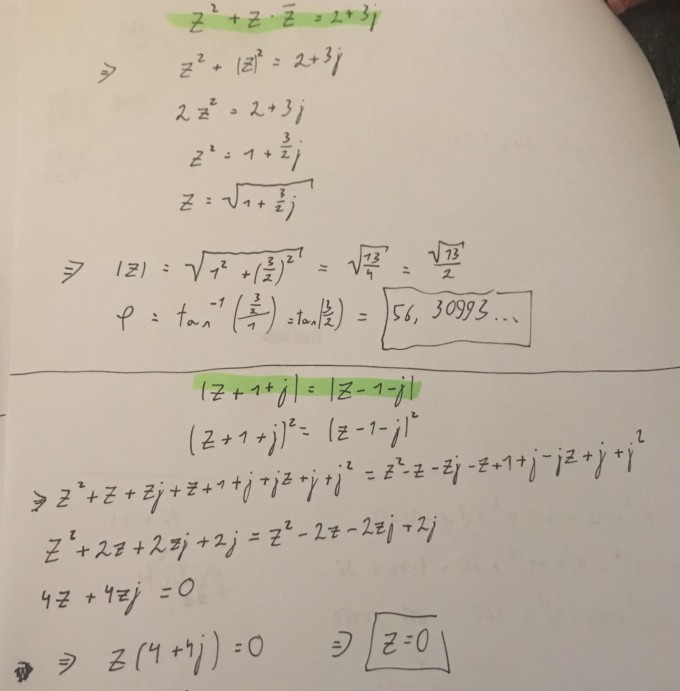 z² + z · z̄ = 2+3j
⇒ z² + |z|² = 2+3j
2z² = 2+3j
z² = 1 + 3/2 j
z = √(1 + 3/2 j)
⇒ |z| = √(1² + (3/2)²) = √(13/4) = √13/2
φ = tan⁻¹((3/2)/1) = tan(3/2) = 56,30993...
|z+1+j| = |z-1-j|
(z+1+j)² = (z-1-j)²
⇒ z²+z+zj+z+1+j+jz+j+j² = z²-z-zj-z+1+j-jz+j+j²
z²+2z+2zj+2j = z²-2z-2zj+2j
4z + 4zj = 0
⇒ z(4+4j) = 0 ⇒ z=0